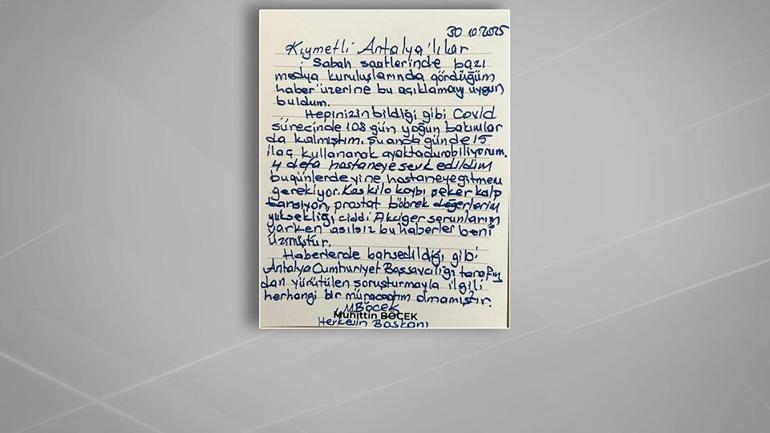 30.10.2025
Kıymetli Antalya'lılar
Sabah saatlerinde bazı
medya kuruluşlarında gördüğüm
haber üzerine bu açıklamayı uygun
buldum.
Hepinizin bildiği gibi Covid
sürecinde 108 gün yoğun bakımlar
da kalmıştım. Şu anda günde 15
ilaç kullanarak ayakta durabiliyorum.
4 defa hastaneye sevk edildim
bugünlerde yine hastaneye gitmem
gerekiyor. Kas kilo kaybı şeker kalp
tansiyon, prostat böbrek değerlerim
yüksekliği ciddi Akciğer sorunlarım
varken asılsız bu haberler beni
üzmüştür.
Haberlerde bahsedildiği gibi
Antalya Cumhuriyet Başsavcılığı tarafın
dan yürütülen soruşturmayla ilgili
herhangi bir müracaatım olmamıştır.
M.BÖCEK
Muhittin BÖCEK
Herkesin Başkanı